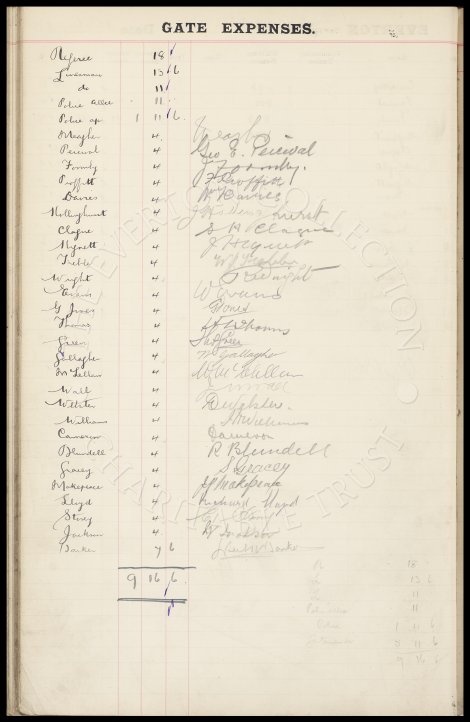 GATE EXPENSES.
Referee 18
Linesman 13 6
do 11
Police Allce 11
Police ap 1 11 6
Meagher 4
Percival 4 Geo E. Percival
Formby 4 J Formby
Proffitt 4 F Proffitt
Davies 4 W Davies
Hollinghurst 4 hurst
Clague 4 S H Clague
Hignett 4 J Hignett
Treble 4
Wright 4 Wright
Evans 4 W Evans
G Jones 4 G Jones
Thomas 4 Thomas
Green 4 Green
Gallagher 4 Gallagher
McLellan 4 W McLellan
Wall 4
Webster 4 Webster.
Williams 4 Williams
Cameron 4 Cameron
Blundell 4 R Blundell
Gracey 4 S Gracey
Makepeace 4 Makepeace
Lloyd 4 Richard Lloyd
Storey 4
Jackson 4 Jackson
Barker 7 6 Barker
9 16 6
18
13 6
11
11
1 11 6
5 11 6
9 16 6
EVERTON COLLECTION
CHARITABLE TRUST